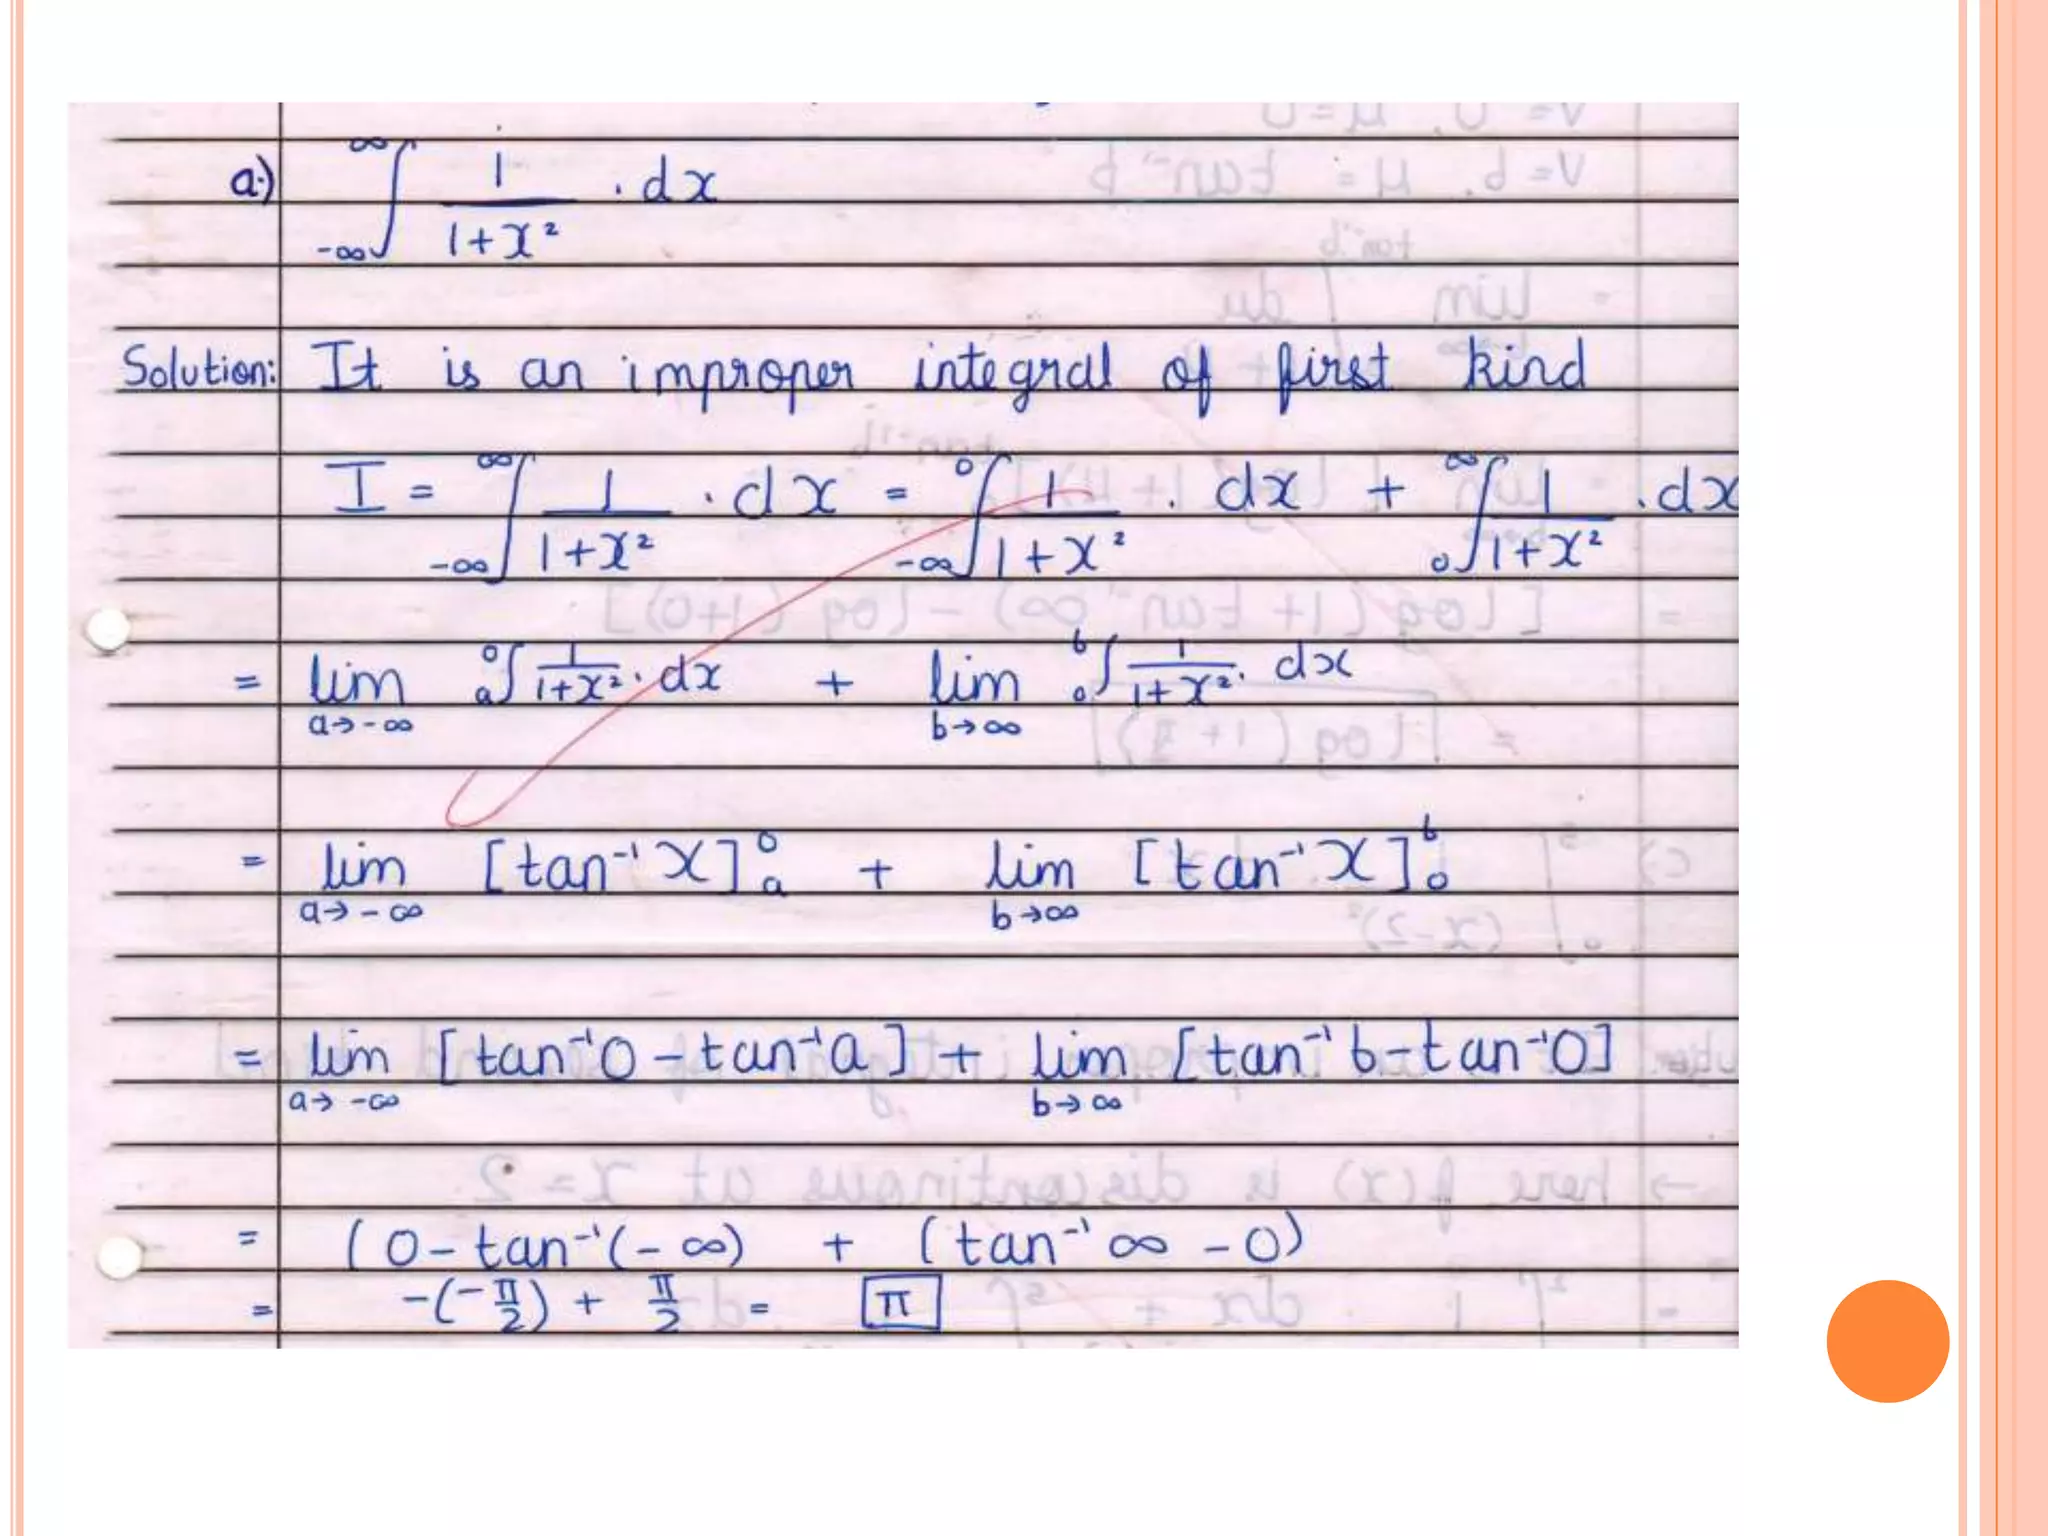 a.) ∞∫-∞ 1/1+x² . dx
Solution: It is an improper integral of first kind
I = ∞∫-∞ 1/1+x² . dx = 0∫-∞ 1/1+x² . dx + ∞∫0 1/1+x² . dx
= lim a→-∞ 0∫a 1/1+x² . dx + lim b→∞ b∫0 1/1+x² . dx
= lim a→-∞ [tan⁻¹ x]0a + lim b→∞ [tan⁻¹ x]b0
= lim a→-∞ [tan⁻¹0 - tan⁻¹a] + lim b→∞ [tan⁻¹ b - tan⁻¹0]
= (0 - tan⁻¹(-∞) + (tan⁻¹ ∞ - 0)
= -(-π/2) + π/2 = π